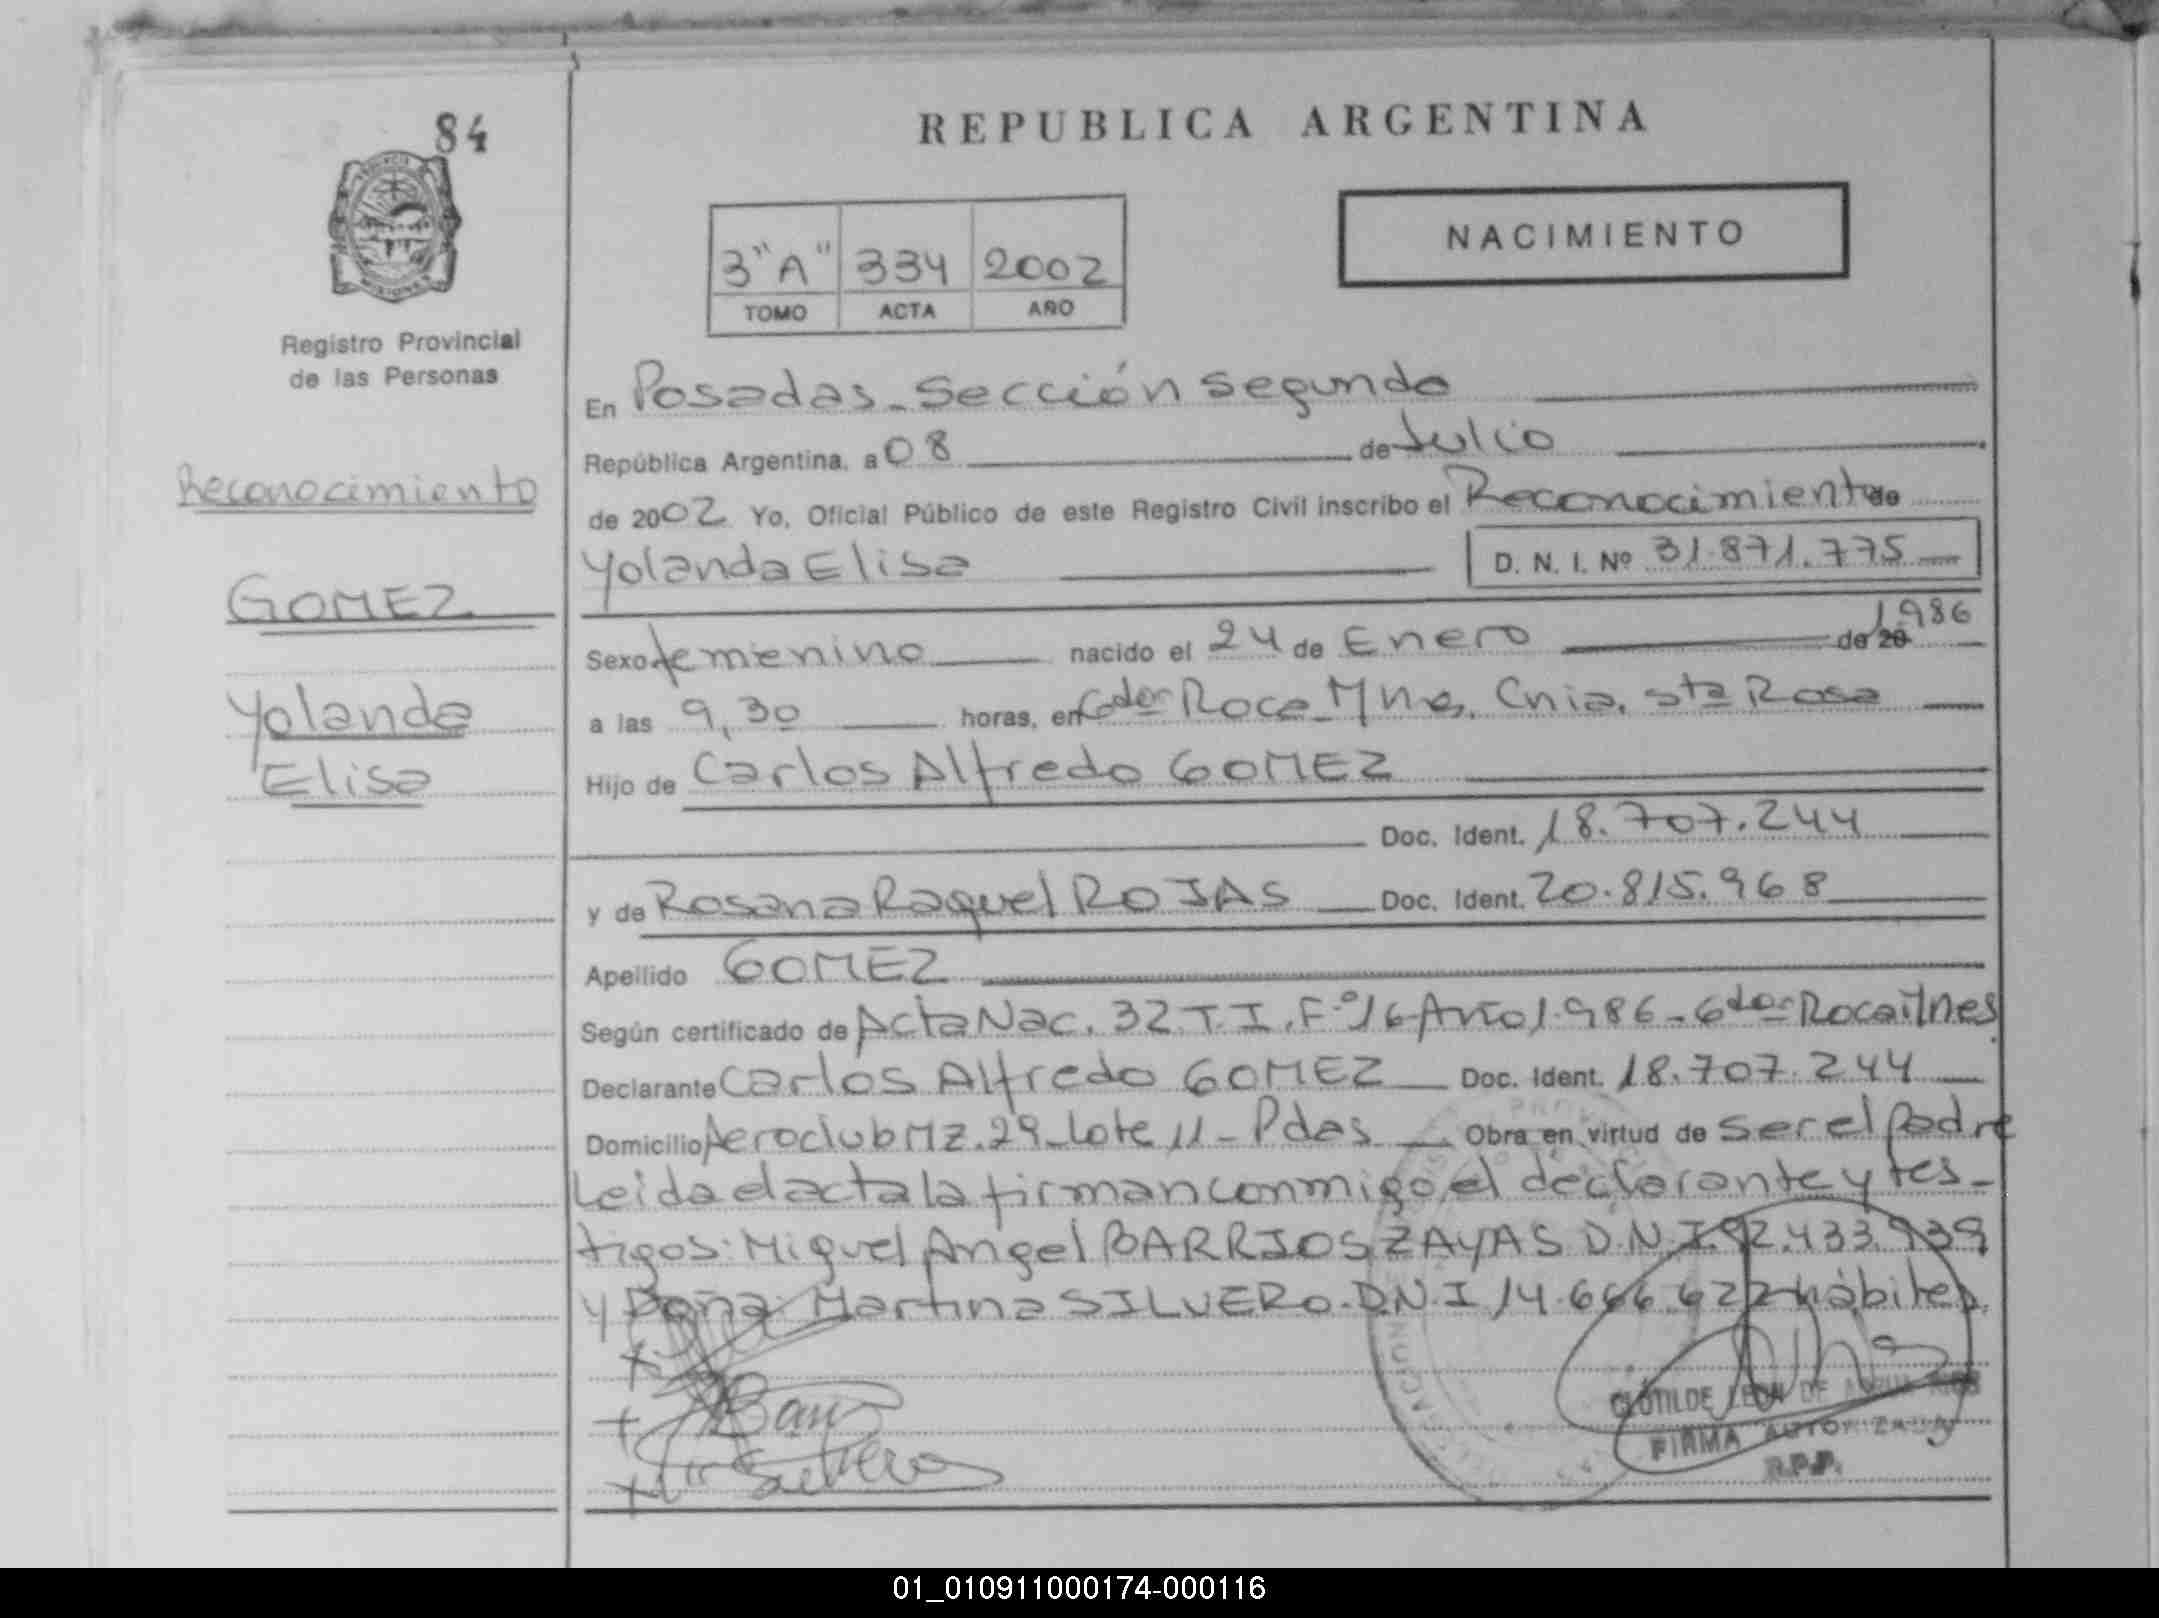 84
REPUBLICA ARGENTINA
NACIMIENTO
3"A" 334 2002
TOMO ACTA AÑO
Registro Provincial
de las Personas
Reconocimiento
GOMEZ
Yolanda
Elisa
En Posadas - Sección Segunda
República Argentina, a 08 de Julio
de 2002 Yo, Oficial Público de este Registro Civil inscribo el Reconocimiento de
Yolanda Elisa D. N. I. Nº 31.871.775
Sexo femenino nacido el 24 de Enero de 20 1986
a las 9,30 horas, en Gdor Roca Mnes. Cnia. Sta Rosa
Hijo de Carlos Alfredo GOMEZ
Doc. Ident. 18.707.244
y de Rosana Raquel ROJAS Doc. Ident. 20.815.968
Apellido GOMEZ
Según certificado de Acta Nac. 32 T. I. Fº 16 Año 1.986 - Gdor Roca Mnes
Declarante Carlos Alfredo GOMEZ Doc. Ident. 18.707.244
Domicilio Aeroclub MZ. 29 - Lote 11 - Pdas Obra en virtud de ser el padre
Leida el acta la firman conmigo el declarante y tes-
tigos: Miguel Angel BARRIOS ZAYAS D.N.I. 92.433.939
y Doña Martina SILVERO. D.N.I 14.666.622 hábiles.
CLOTILDE LEON DE
FIRMA AUTORIZADA
R.P.P.
01_010911000174-000116